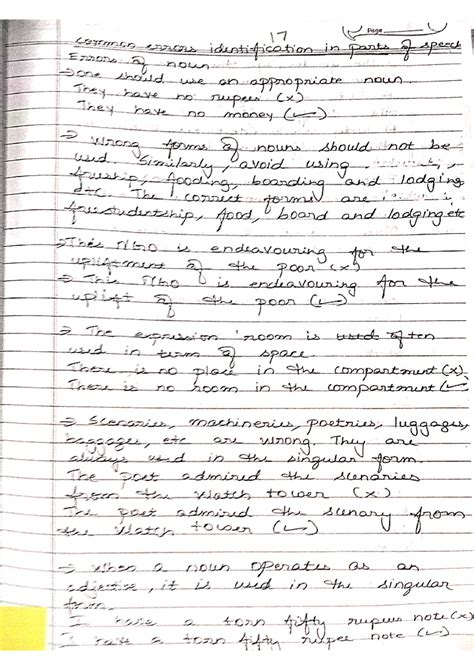 17
Page
common errors identification in parts of speech
Errors of noun
→ one should use an appropriate noun.
They have no rupees (x)
They have no money (✓)
⇒ Wrong forms of nouns should not be
used. Similarly, avoid using
freeship, fooding, boarding and lodging
etc. The correct forms are
freestudentship, food, board and lodging etc
⇒ This NGO is endeavouring for the
upliftment of the poor (x)
⇒ This NGO is endeavouring for the
uplift of the poor (✓)
⇒ The expression 'room is used often
used in term of space
There is no place in the compartment (x)
There is no room in the compartment (✓)
⇒ Scenaries, machineries, poetries, luggages,
baggages, etc are wrong. They are
always used in the singular form.
The poet admired the scenaries
from the watch tower (x)
The poet admired the scenary from
the watch tower (✓)
⇒ When a noun operates as an
adjective, it is used in the singular
form.
I have a torn fifty rupees note (x)
I have a torn fifty rupee note (✓)